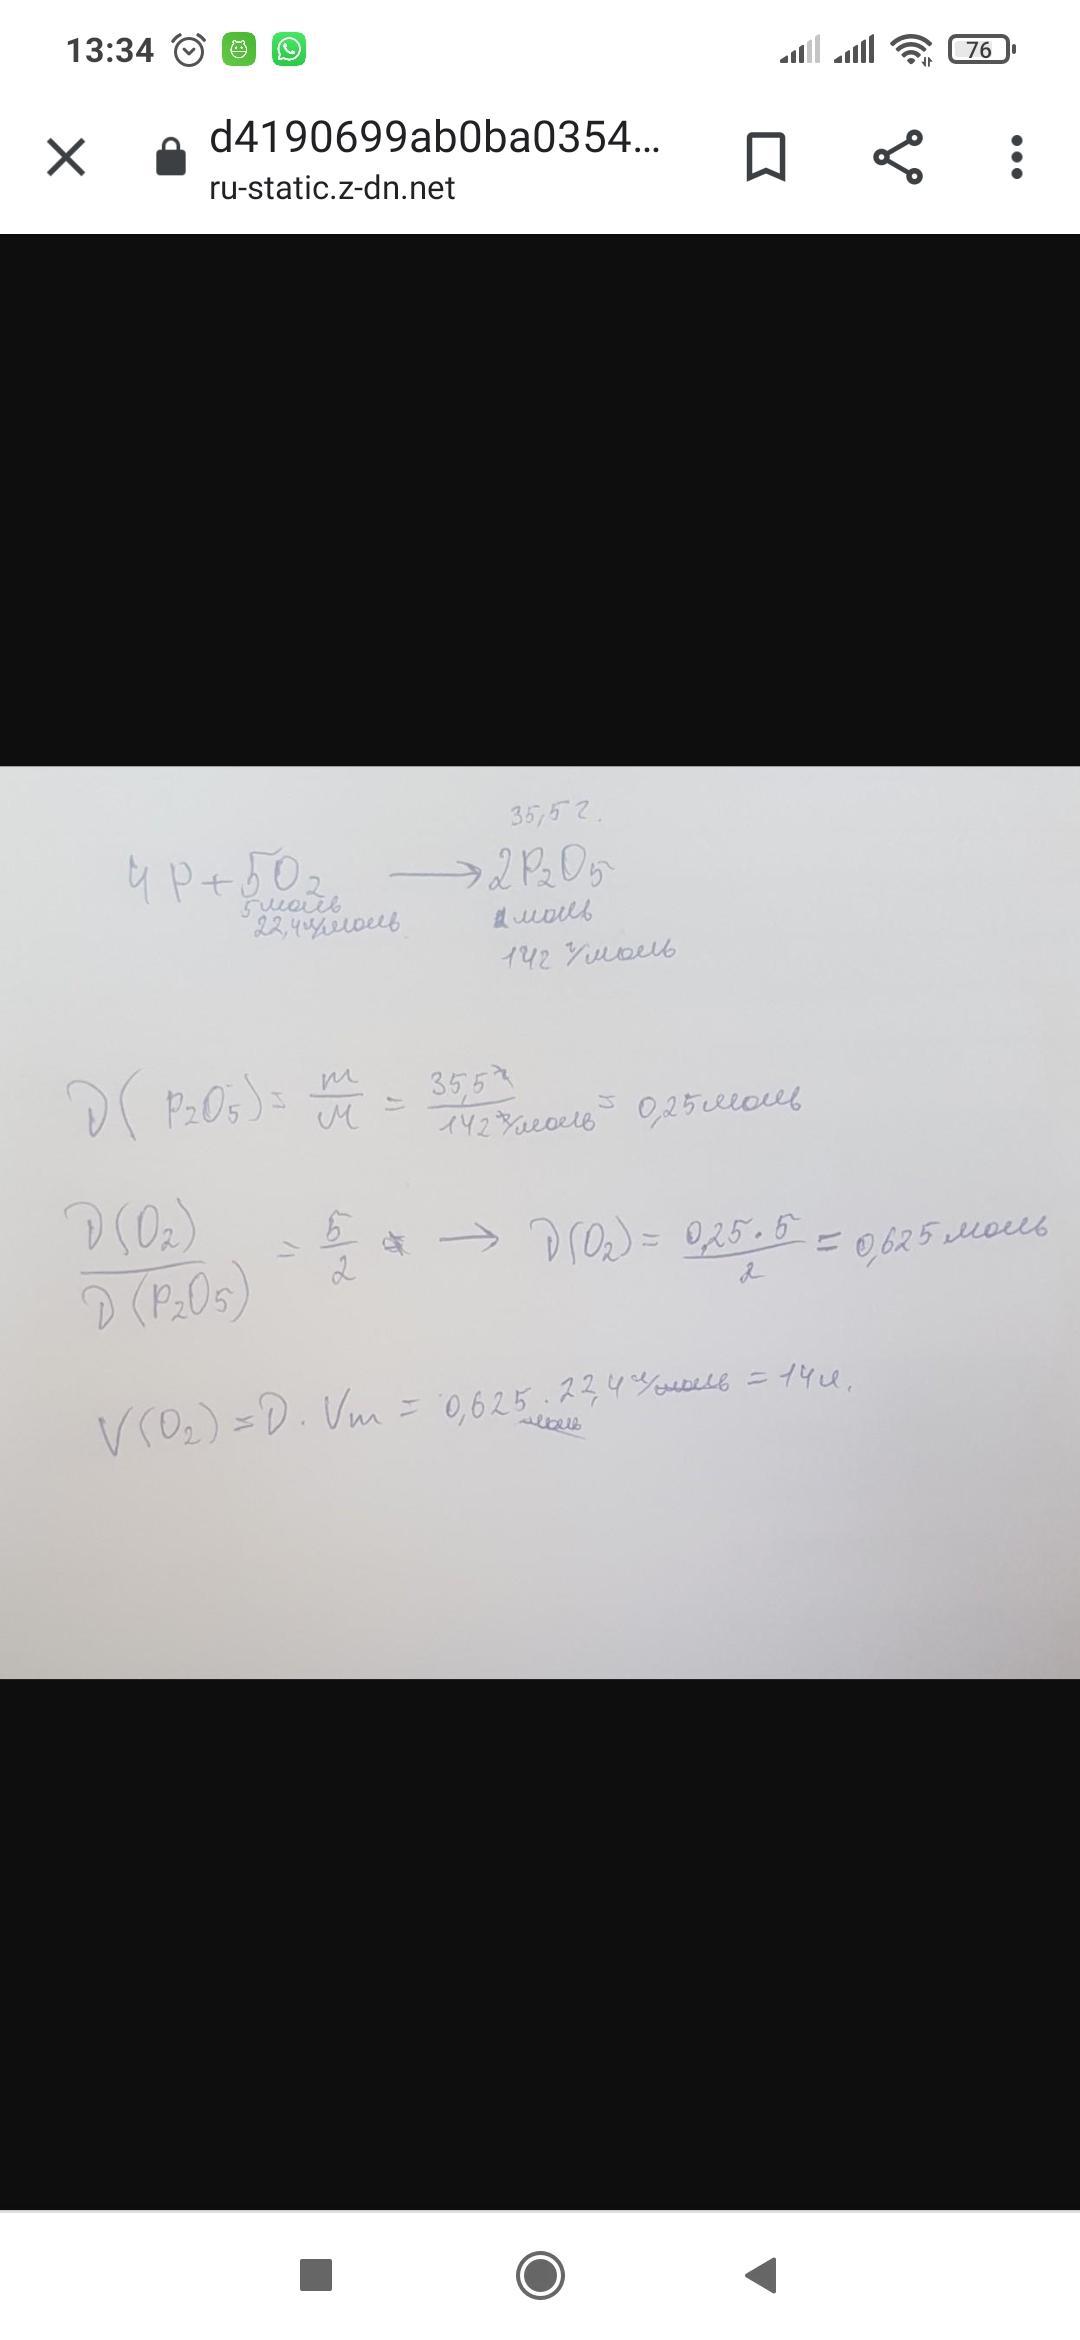 13:34
76
d4190699ab0ba0354...
ru-static.z-dn.net
35,5 г.
4P + 5O₂ → 2P₂O₅
5 моль
22,4 л/моль
2 моль
142 г/моль
D(P₂O₅) = m/M = 35,5 г / 142 г/моль = 0,25 моль
D(O₂) / D(P₂O₅) = 5/2 → D(O₂) = 0,25 · 5 / 2 = 0,625 моль
V(O₂) = D · Vm = 0,625 моль · 22,4 л/моль = 14 л.